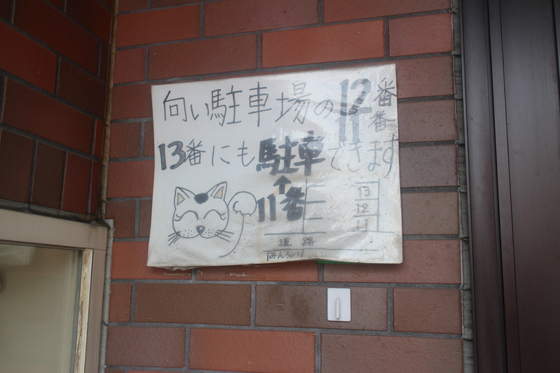 向い駐車場の12番
11番
13番にも駐車できます
↑
11番
13
12
11
道路